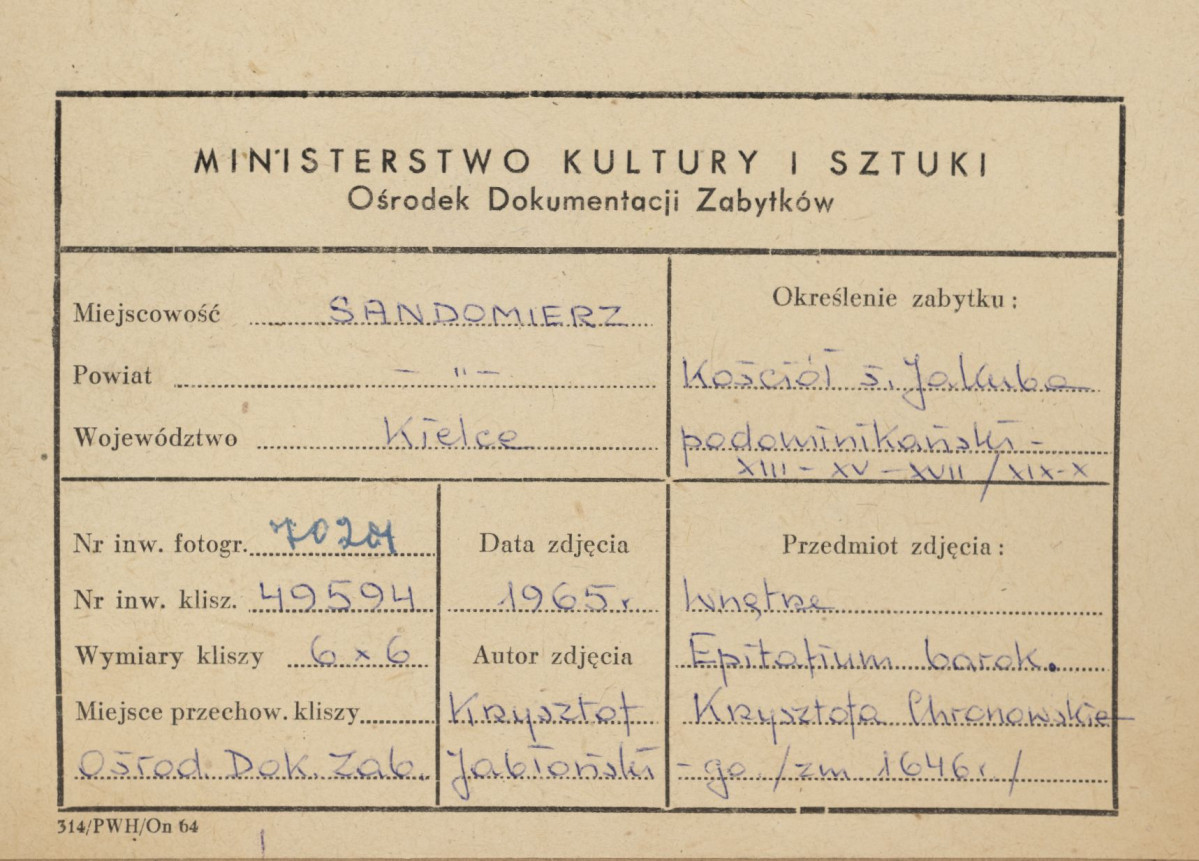 MINISTERSTWO KULTURY I SZTUKI
Ośrodek Dokumentacji Zabytków
Miejscowość SANDOMIERZ
Powiat - " -
Województwo Kielce
Określenie zabytku:
Kościół ś. Jakuba
podominikański -
XIII - XV - XVII / XIX-X
Nr inw. fotogr.
Nr inw. klisz. 49594
Wymiary kliszy 6 x 6
Miejsce przechow. kliszy
Ośrod. Dok. Zab.
Data zdjęcia
1965 r.
Autor zdjęcia
Krzysztof
Jabłoński
Przedmiot zdjęcia:
Wnętrze
Epitafium barok.
Krzysztofa Chronowskie-
-go. /zm 1646 r./
314/PWH/On 64